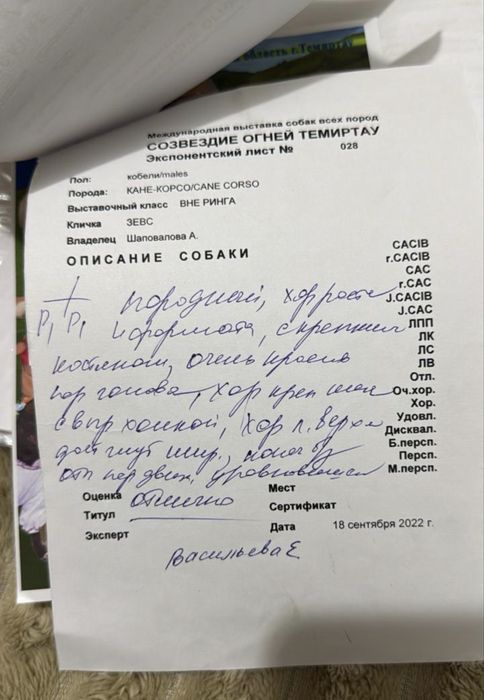 область г.Темиртау
Международная выставка собак всех пород
СОЗВЕЗДИЕ ОГНЕЙ ТЕМИРТАУ
Экспонентский лист № 028
Пол: кобели/males
Порода: КАНЕ-КОРСО/CANE CORSO
Выставочный класс ВНЕ РИНГА
Кличка ЗЕВС
Владелец Шаповалова А.
ОПИСАНИЕ СОБАКИ
CACIB
r.CACIB
CAC
r.CAC
J.CACIB
J.CAC
ЛПП
ЛК
ЛС
ЛВ
Отл.
Оч.хор.
Хор.
Удовл.
Дисквал.
Б.персп.
Персп.
М.персп.
+ породный, хор роста
P1 P1 и формата, с крепким
костяком, очень
хор голова, хор креп
с выр холкой, хор л. верха
отлично
Оценка
Титул
Эксперт
Мест
Сертификат
Дата 18 сентября 2022 г.
Васильева Е